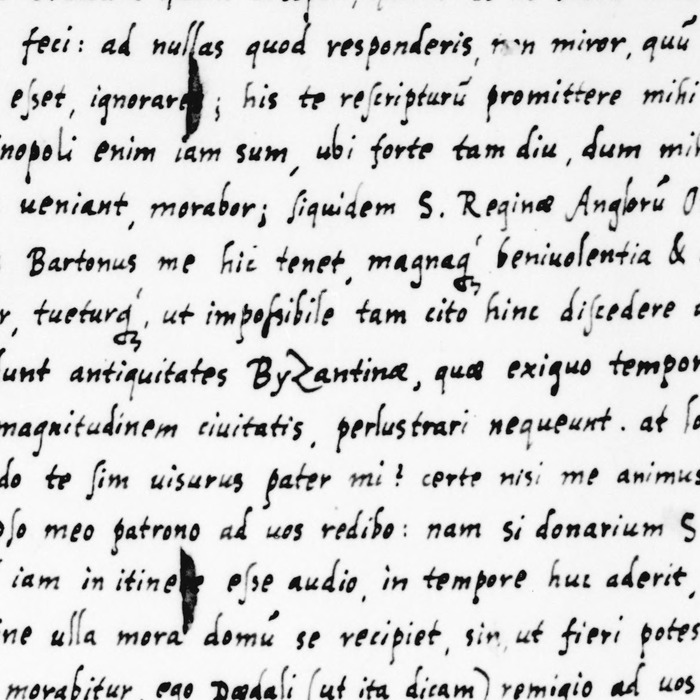 feci: ad nullas quod responderis, non miror, quū
esset, ignorare; his te rescripturū promittere mihi
nopoli enim iam sum, ubi forte tam diu, dum mih
ueniant, morabor; siquidem S. Reginæ Anglorū O
Bartonus me hic tenet, magnaq́ beniuolentia &
r, tueturq́, ut impossibile tam cito hinc discedere
unt antiquitates Byzantinæ, quæ exiguo tempor
magnitudinem ciuitatis, perlustrari nequeunt. at
do te sim uisurus pater mi? certe nisi me animus
meo patrono ad uos redibo: nam si donarium S
iam in itinere esse audio, in tempore huc aderit,
ne ulla mora domū se recipiet, sin, ut fieri potes
morabitur, ego Dædali (ut ita dicam) remigio ad uos